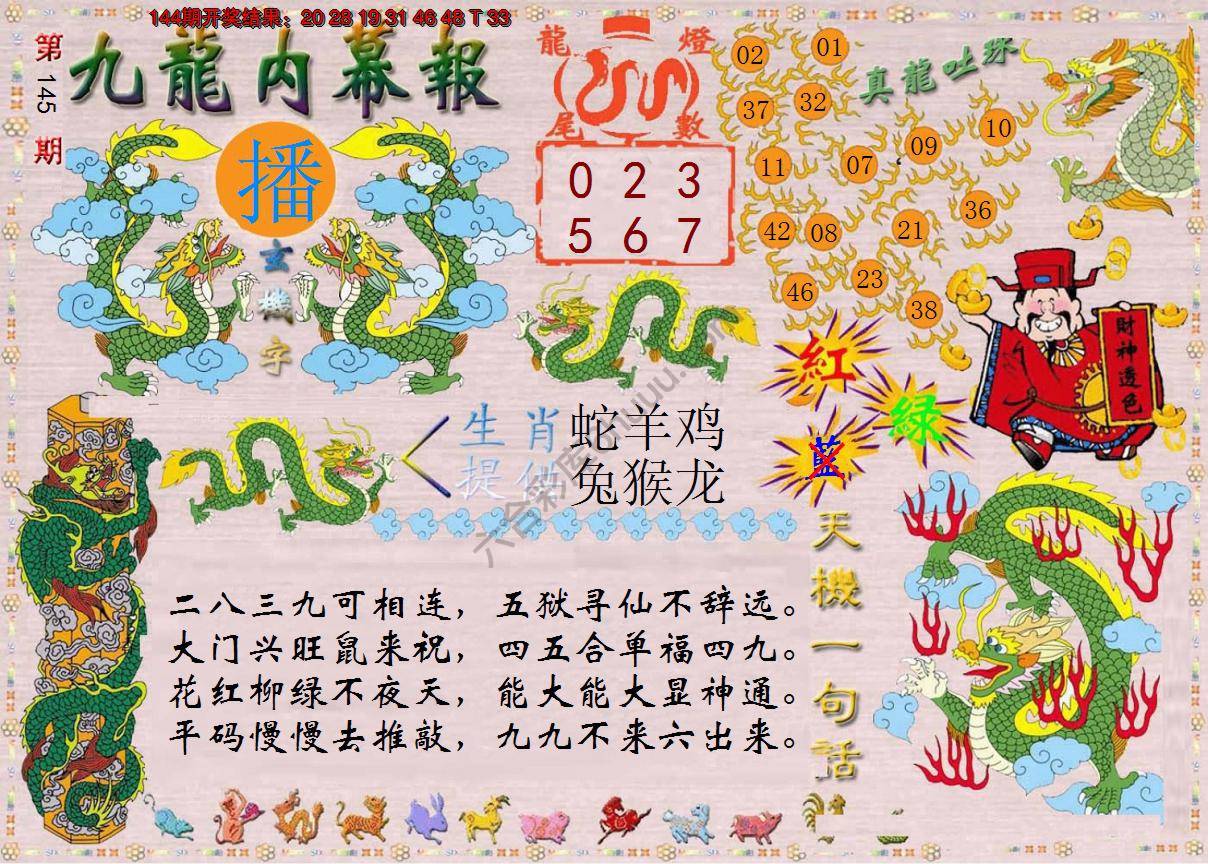 144期开奖结果：20 28 19 31 46 48 T 33
第145期
九龍内幕報
播
玄機字
龍燈
尾數
0 2 3
5 6 7
真龍吐珠
02 01
37 32
09 10
11 07
36
42 08 21
23
46 38
財神透色
紅
綠
藍
生肖 蛇羊鸡
提供 兔猴龙
天機一句話
二八三九可相连，五狱寻仙不辞远。
大门兴旺鼠来祝，四五合单福四九。
花红柳绿不夜天，能大能大显神通。
平码慢慢去推敲，九九不来六出来。